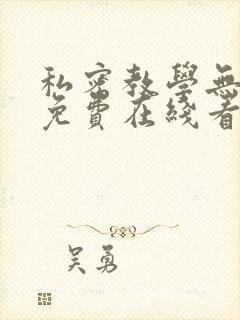 私密教學無
免費在线看
吴勇